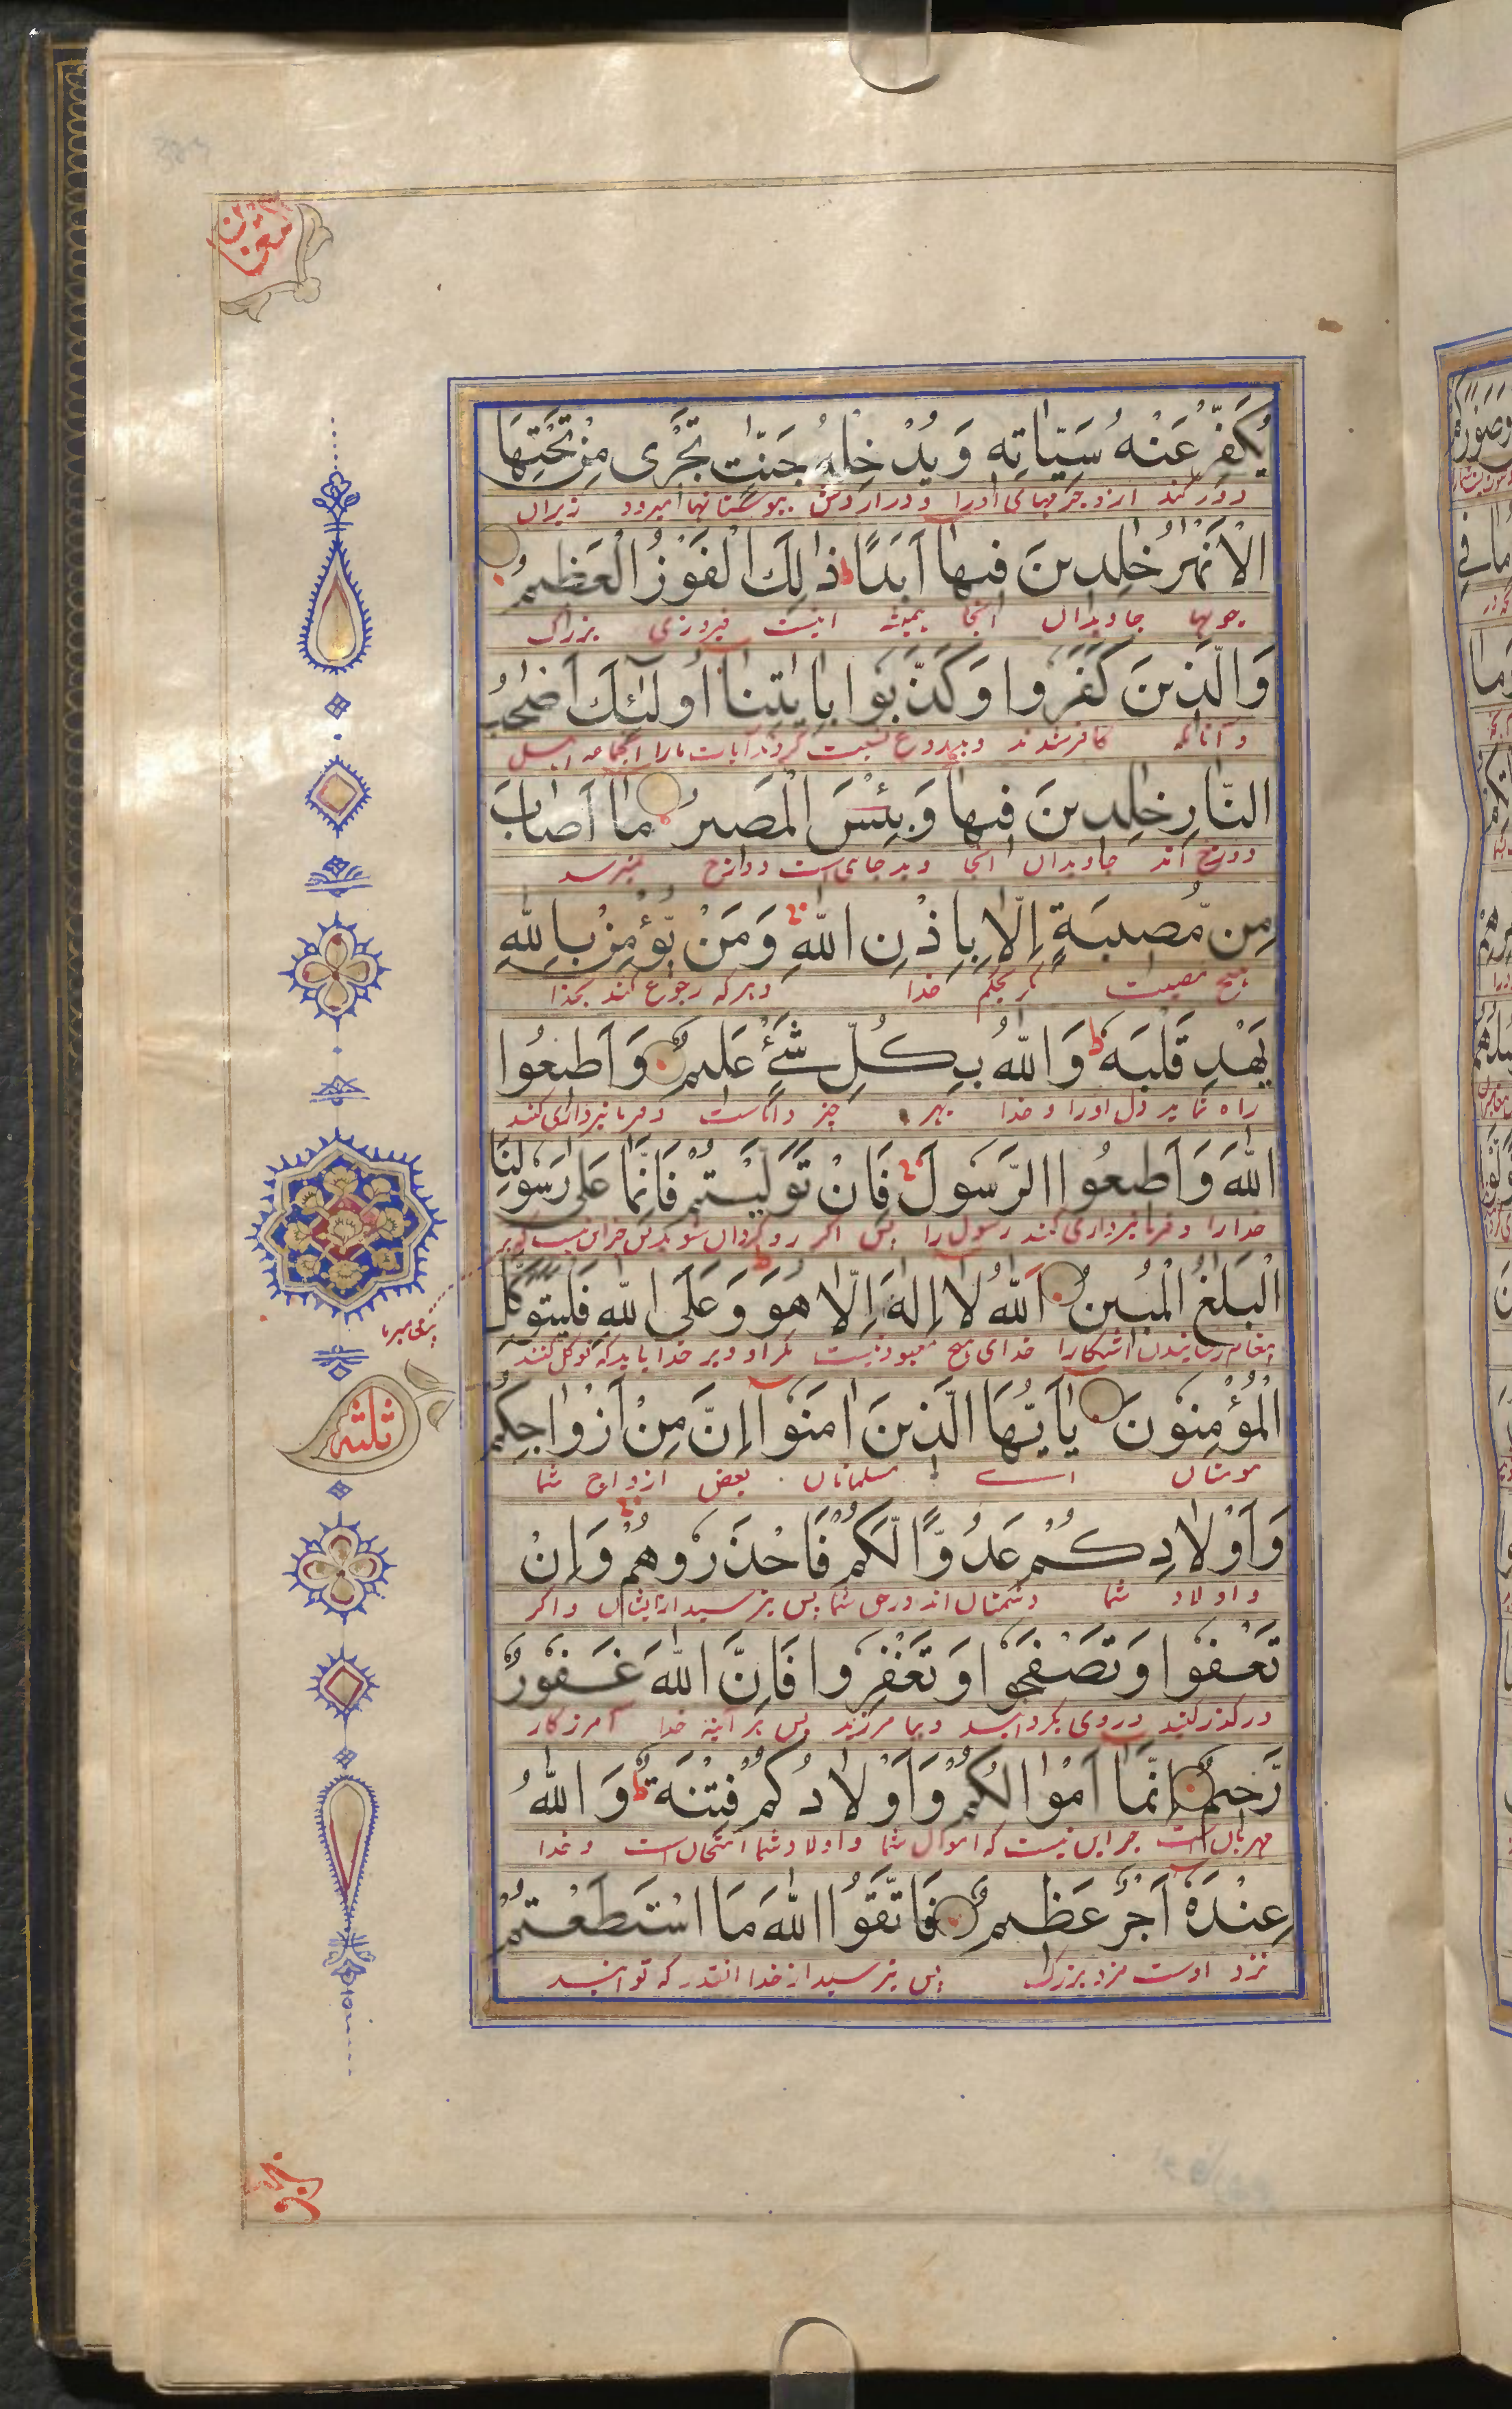 يُكَفِّرْ عَنْهُ سَيِّاٰتِهٖ وَيُدْخِلْهُ جَنّٰتٍ تَجْرٖى مِنْ تَحْتِهَا
دور کند ازو جرمهای اورا و درآردش ببوستانها میرود زیران
الْاَنْهٰرُ خٰلِدٖينَ فٖيهَا اَبَدًا ط ذٰلِكَ الْفَوْزُ الْعَظٖيمُ
جویها جاویدان آنجا همیشه اینست فیروزی بزرگ
وَالَّذٖينَ كَفَرُوا وَكَذَّبُوا بِاٰيٰتِنَا اُولٰئِكَ اَصْحٰبُ
و آنانکه کافر شدند و بدروغ نسبت کردند آیات مارا آنجماعه اهل
النَّارِ خٰلِدٖينَ فٖيهَا وَبِئْسَ الْمَصٖيرُ مَا اَصَابَ
دوزخ اند جاویدان آنجا و بد جای است دوزخ نمیرسد
مِنْ مُصٖيبَةٍ اِلَّا بِاِذْنِ اللّٰهِ وَمَنْ يُؤْمِنْ بِاللّٰهِ
هیچ مصیبت مگر بحکم خدا و هرکه رجوع کند بخدا
يَهْدِ قَلْبَهٗ ط وَاللّٰهُ بِكُلِّ شَيْءٍ عَلٖيمٌ وَاَطٖيعُوا
راه نماید دل اورا و خدا بهر چیز داناست و فرمانبرداری کنید
اللّٰهَ وَاَطٖيعُوا الرَّسُولَ فَاِنْ تَوَلَّيْتُمْ فَاِنَّمَا عَلٰى رَسُولِنَا
خدارا و فرمانبرداری کنید رسول را پس اگر روگردان شوید پس جز این نیست که بر
الْبَلٰغُ الْمُبٖينُ اَللّٰهُ لَا اِلٰهَ اِلَّا هُوَ وَعَلَى اللّٰهِ فَلْيَتَوَكَّلِ
پیغام رسانیدن آشکارا خدای هیچ معبود نیست مگر او و بر خدا باید که توکل کنند
الْمُؤْمِنُونَ يٰاَيُّهَا الَّذٖينَ اٰمَنُوا اِنَّ مِنْ اَزْوَاجِكُمْ
مومنان اے مسلمانان بعض ازواج شما
وَاَوْلَادِكُمْ عَدُوًّا لَكُمْ فَاحْذَرُوهُمْ وَاِنْ
و اولاد شما دشمنان اند در حق شما پس بترسید ازایشان و اگر
تَعْفُوا وَتَصْفَحُوا وَتَغْفِرُوا فَاِنَّ اللّٰهَ غَفُورٌ
درگذر کنید و روی بگردانید و بیامرزید پس هر آینه خدا آمرزگار
رَحٖيمٌ اِنَّمَا اَمْوَالُكُمْ وَاَوْلَادُكُمْ فِتْنَةٌ ط وَاللّٰهُ
مهربان است جز این نیست که اموال شما و اولاد شما امتحان است و خدا
عِنْدَهٗ اَجْرٌ عَظٖيمٌ فَاتَّقُوا اللّٰهَ مَا اسْتَطَعْتُمْ
نزد اوست مزد بزرگ پس بترسید از خدا آنقدر که توانید
ثلثه